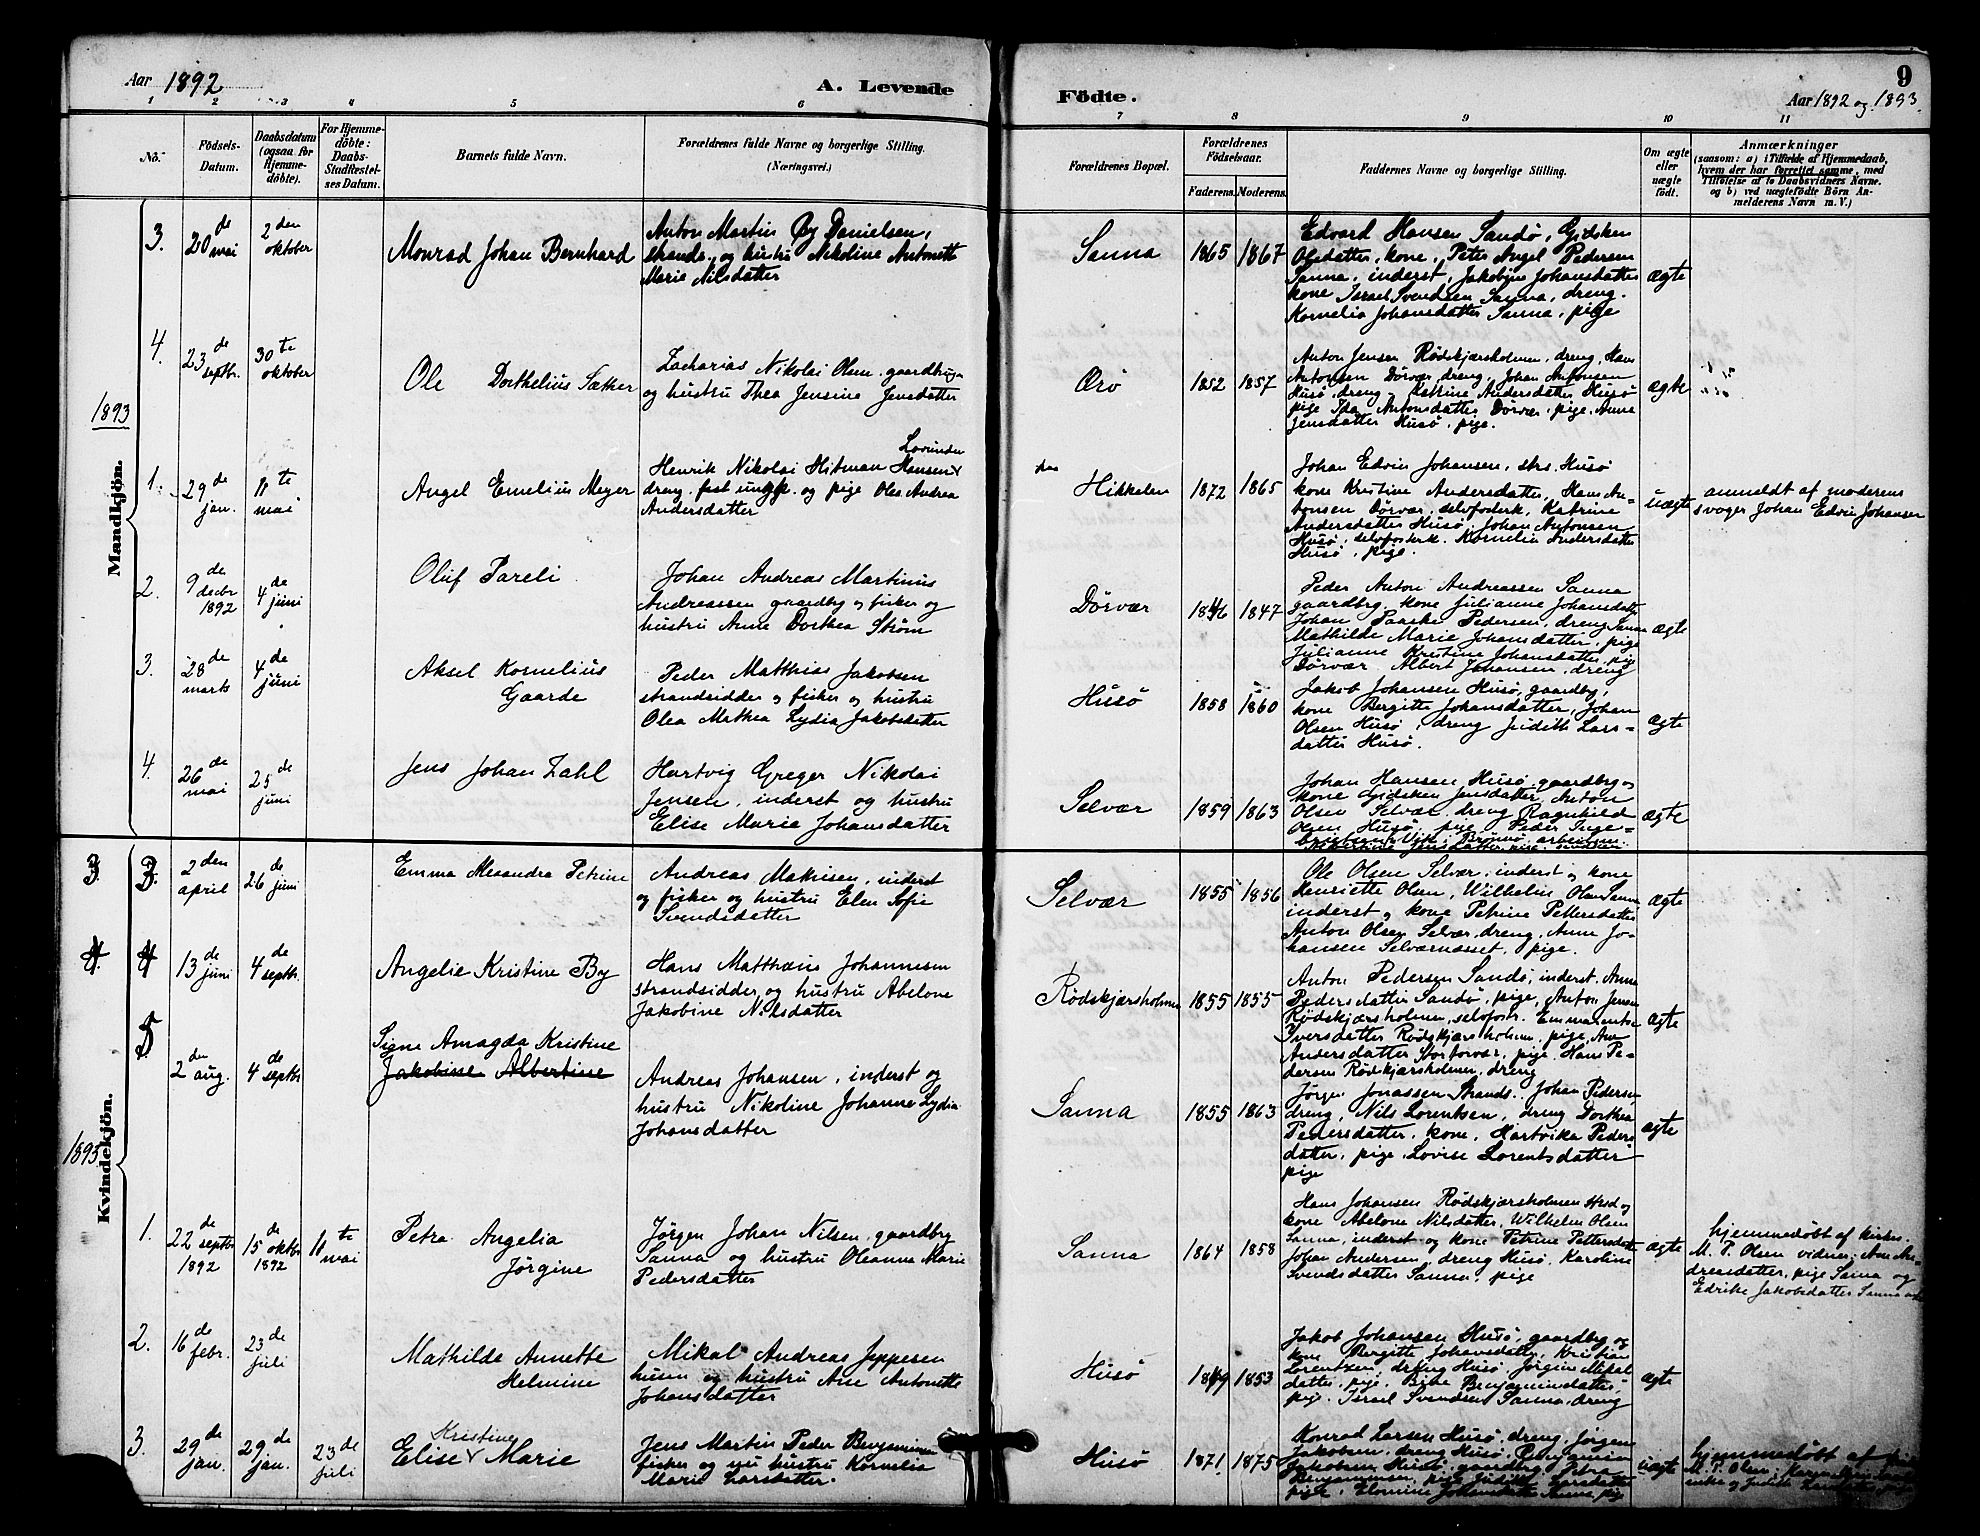 Aar 1892
A. Levende
Födte.
9
Aar 1892 og 1893.
1 2 3 4 5 6 7 8 9 10 11
No.
Födsels-
Datum.
Daabsdatum
(ogsaa for
Hjemme-
döbte).
For Hjemme-
döbte:
Daabs-
Stadfæstel-
ses Datum.
Barnets fulde Navn.
Forældrenes fulde Navne og borgerlige Stilling.
(Næringsvei.)
Forældrenes Bopæl.
Forældrenes
Födselsaar.
Faderens. Moderens.
Faddernes Navne og borgerlige Stilling.
Om ægte
eller
uægte
födt.
Anmærkninger
(saasom: a) i Tilfælde af Hjemmedaab,
hvem der har forrettet samme, med
Tilföielse af to Daabsvidners Navne.
og b) ved uægtefödte Börn An-
melderens Navn m. V.)
Mandkjön.
3.
20de
mai
2den
oktober
Monrad Johan Bernhard
Anton Martin Øy Danielsen,
strands. og hustru Nikoline Antonette
Marie Nilsdatter
Sanna
1865 1867
Edvard Hansen Sandö, Gidsken
Olsdatter, kone, Peter Angel Pedersen
Sanna, inderst, Jakobine Johansdatter
kone Israel Svendsen Sanna, dreng.
Kornelia Johansdatter Sanna, pige
ægte
4.
23de
septbr.
30te
oktober
Ole Dorthelius Sæther
Zacharias Nikolai Olsen gaardbrug
og hustru Thea Jensine Jensdatter
Örö
1852 1857
Anton Jensen Rödskjærsholmen, dreng, Hans
Antonsen Dörvær, dreng, Johan Antonsen
Husö, dreng, Katrine Andersdatter Husö
pige Ida Antonsdatter Dörvær, pige. Anne
Jensdatter Husö, pige.
ægte
1893
1.
29de
jan.
11te
mai
Angel Emelius Meyer
Lovunden
Henrik Nikolai Hitman Hansen
dreng. fast ungk. og pige Olea Andrea
Andersdatter
paa
Hikkelen
1872 1865
Johan Edvin Johansen, strs. Husö
kone Kristine Andersdatter, Hans An-
tonsen Dörvær, selvfosterk, Katrine
Andersdatter Husö, Johan Antonsen
Husö, selvfosterk. Kornelia Andersdatter
Husö, pige.
uægte
anmeldt af moderens
svoger Johan Edvin Johansen
2.
9de
decbr
1892
4de
juni
Oluf Pareli
Johan Andreas Martinus
Andreassen gaardbg og fisker og
hustru Anne Dorthea Ström
Dörvær
1846 1847
Peder Anton Andreassen Sanna
gaardbrg, kone Julianne Johansdatter
Johan Paaske Pedersen, dreng Sanna
Mathilde Marie Johansdatter, pige
Julianne Kristine Johansdatter, pige
Dörvær. Albert Johansen, dreng
ægte
3.
28de
marts
4de
juni
Aksel Kornelius
Gaarde
Peder Matthias Jakobsen
strandsidder og fisker og hustru
Olea Mathea Lydia Jakobsdatter
Husö
1858 1860
Jakob Johansen Husö, gaardbg,
kone Bergitte Johansdatter, Johan
Olsen Husö, dreng Judith Lars-
datter Husö.
ægte
4.
26de
mai
25de
juni
Jens Johan Zahl
Hartvig Greger Nikolai
Jensen, inderst og hustru
Elise Marie Johansdatter
Selvær
1859 1863
Johan Hansen Husö, gaardbg og
kone Gidsken Jensdatter, Anton
Olsen Selvær, dreng Ragnhild
Olsen Husö, pige, Peder Inge-
ægte
Kvindekjön.
3 3.
2den
april
26de juni
Emma Alexandra Petrine
Andreas Mathisen, inderst
og fisker og hustru Elen Sofie
Svendsdatter
Selvær
1855 1856
Ole Olsen Selvær, inderst og kone
Henriette Olsen, Wilhelm Olsen Sanna
inderst og kone Petrine Pettersdatter
Anton Olsen Selvær, dreng, Anne Jo-
hansen Selværnæsset, pige.
ægte
4. 4
13de
juni
4de
septbr.
Angelie Kristine By
Hans Matthæus Johannesen
strandsidder og hustru Abelone
Jakobine Nilsdatter
Rödskjærsholmen
1855 1855
Anton Pedersen Sandö, inderst, Anne
Pedersdatter Sandö, pige, Anton Jensen
Rödskjærsholmen, selvfostr. Emmarentse
Iversdatter Rödskjærsholmen, pige, Ane
Andersdatter Stortorvær, pige. Hans Pe-
dersen Rödskjærsholmen, dreng
ægte
5
2den
aug.
4de
septbr
Signe Amagda Kristine
Jakobine Albertine
Andreas Johansen, inderst og
hustru Nikoline Johanne Lydia
Johansdatter
Sanna
1855 1863
Jörgen Jonassen Strands. Johan Pedersen
dreng, Nils Lorentsen, dreng Dorthea
Pedersdatter, kone, Hartvika Peders
datter, pige. Lovise Lorentsdatter
pige
ægte
1893
1.
22de
septbr
1892
15de
oktbr
1892
11te
mai
Petra Angelia
Jörgine
Jörgen Johan Nilsen, gaardbg
Sanna og hustru Oleanna Marie
Pedersdatter
Sanna
1864 1858
Hans Johansen Rödskjærsholmen Strd og
kone Abelone Nilsdatter, Wilhelm Olsen
Sanna, inderst og kone Petrine Pettersdatter
Johan Andersen, dreng Husö, Karoline
Svendsdatter Sanna, pige
ægte
hjemmedöbt af kirkes.
M. P. Olsen vidner: Ane An-
dreasdatter, pige Sanna og
Edrike Jakobsdatter Sanna
2.
16de
febr.
23de
juli
Mathilde Annette
Helmine
Mikal Andreas Jeppesen
husm og hustru Ane Antonette
Johansdatter
Husö
1849 1853
Jakob Johansen Husö, gaardbg og
kone Bergitte Johansdatter, Kristian
Lorentzen, dreng Husö, Jörgine Mikal
datter, pige. Benjaminsdatter,
pige. Israel Svendsen Sanna, dreng
ægte
3.
29de
jan.
29de
jan.
23de
juli
Kristine
Elise Marie
Jens Martin Peder Benjaminsen
fisker og nu hustru Kornelia
Marie Larsdatter.
Husö
1871 1875
Konrad Larsen Husö, dreng, Jörgen
Jakobsen, dreng Husö, Benjamin
Jakobsen Husö, gaardbg, Petra
Benjaminsen, pige Judith Larsdatter
pige. Johansdatter Sanna, pige
uægte
hjemmedöbt af
M. P. Olsen,
enke og Judith